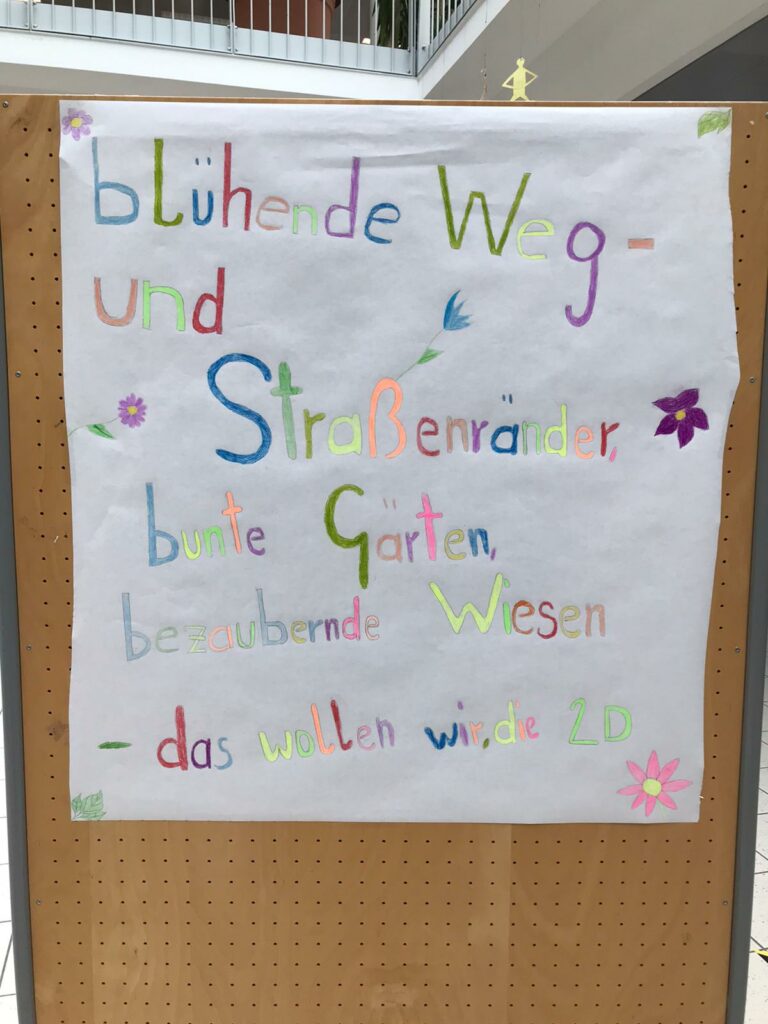 blühende Weg-
und
Straßenränder,
bunte Gärten,
bezaubernde Wiesen
- das wollen wir, die 2D